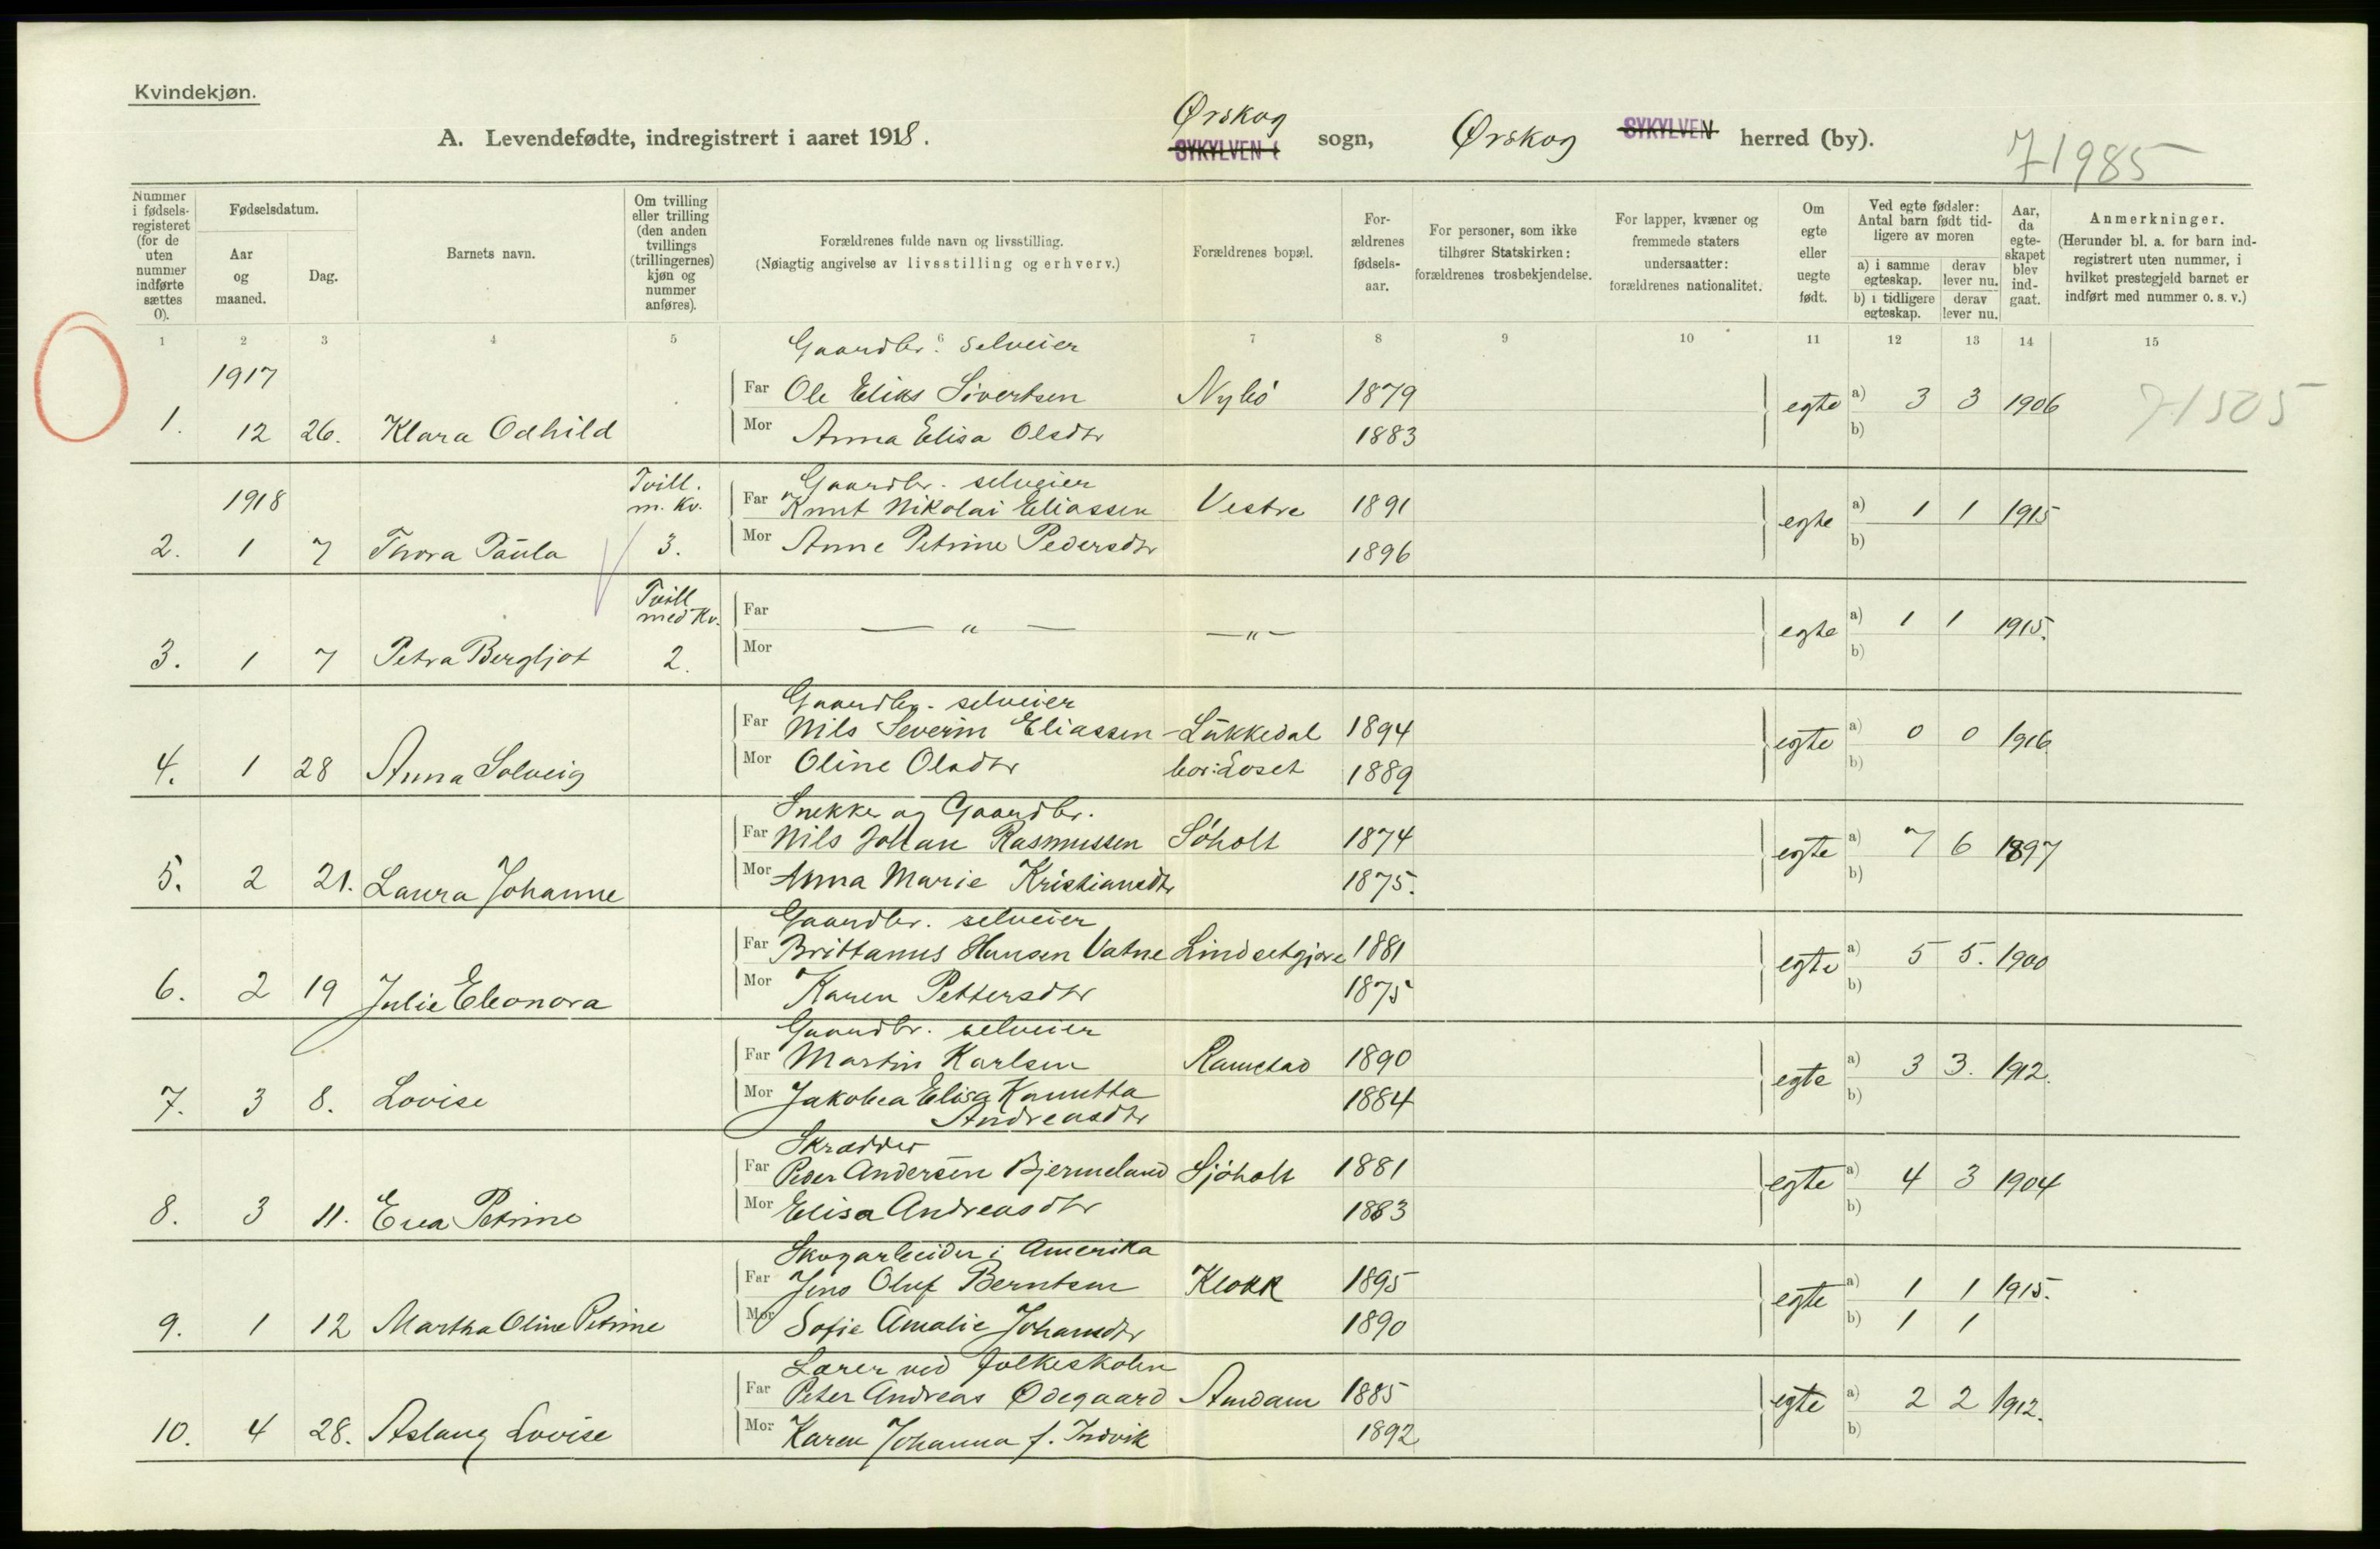 Kvindekjøn.
A. Levendefødte, indregistrert i aaret 1918.
Ørskog
SYKYLVEN sogn, Ørskog SYKYLVEN herred (by).
71985
Nummer i fødsels-registeret (for de uten nummer indførte sættes 0).
Fødselsdatum.
Aar og maaned.
Dag.
Barnets navn.
Om tvilling eller trilling (den anden tvillings (trillingernes) kjøn og nummer anføres).
Forældrenes fulde navn og livsstilling.
(Nøiagtig angivelse av livsstilling og erhverv.)
Forældrenes bopæl.
For-ældrenes fødsels-aar.
For personer, som ikke tilhører Statskirken: forældrenes trosbekjendelse.
For lapper, kvæner og fremmede staters undersaatter: forældrenes nationalitet.
Om egte eller uegte født.
Ved egte fødsler: Antal barn født tid-ligere av moren
a) i samme egteskap.
derav lever nu.
b) i tidligere egteskap.
derav lever nu.
Aar, da egte-skapet blev ind-gaat.
Anmerkninger.
(Herunder bl. a. for barn ind-registrert uten nummer, i hvilket prestegjeld barnet er indført med nummer o. s. v.)
1 2 3 4 5 6 7 8 9 10 11 12 13 14 15
Gaardbr. selveier
1917
Far Ole Elias Sivertsen Nybö 1879
1. 12 26. Klara Odhild egte a) 3 3 1906 71505
Mor Anna Elisa Olsdtr 1883 b)
Tvill. m. kv. Gaardbr. selveier
1918 Far Knut Nikolai Eliassen Vestre 1891
2. 1 7 Thora Paula 3. egte a) 1 1 1915
Mor Anne Petrine Pedersdtr 1896 b)
Tvill med Kv. Far
— " — — " —
3. 1 7 Petra Bergljot 2. Mor egte a) 1 1 1915. b)
Gaardbr. selveier
Far Nils Severin Eliassen - Lükkedal 1894
4. 1 28 Anna Solveig egte a) 0 0 1916
Mor Oline Olsdtr bor: Loset 1889 b)
Snekker og Gaardbr.
Far Nils Johan Rasmussen Söholt 1874
5. 2 21. Laura Johanne egte a) 7 6 1897
Mor Anna Marie Kristiansdtr 1875. b)
Gaardbr. selveier
Far Brittanus Hansen Vatne Lindsetgjære 1881
6. 2 19 Julie Eleonora egte a) 5 5. 1900
Mor Karen Pettersdtr 1875 b)
Gaardbr. selveier
Far Martin Karlsen Ramstad 1890
7. 3 8. Lovise egte a) 3 3. 1912.
Mor Jakobea Elisa Kanutta 1884 b)
Andreasdtr
Skrædder
Far Peder Andersen Bjermeland Sjöholt 1881
8. 3 11. Eva Petrine egte a) 4 3 1904
Mor Elisa Andreasdtr 1883 b)
Skogarbeider i Amerika
Far Jens Oluf Berntsen Klokk 1895
9. 1 12 Martha Oline Petrine egte a) 1 1 1915.
Mor Sofie Amalie Johansdtr 1890 b) 1 1
Lærer ved folkeskolen
Far Peter Andreas Ødegaard Amdam 1885
10. 4 28. Aslaug Lovise egte a) 2 2 1912.
Mor Karen Johanna f. Indvik 1892 b)